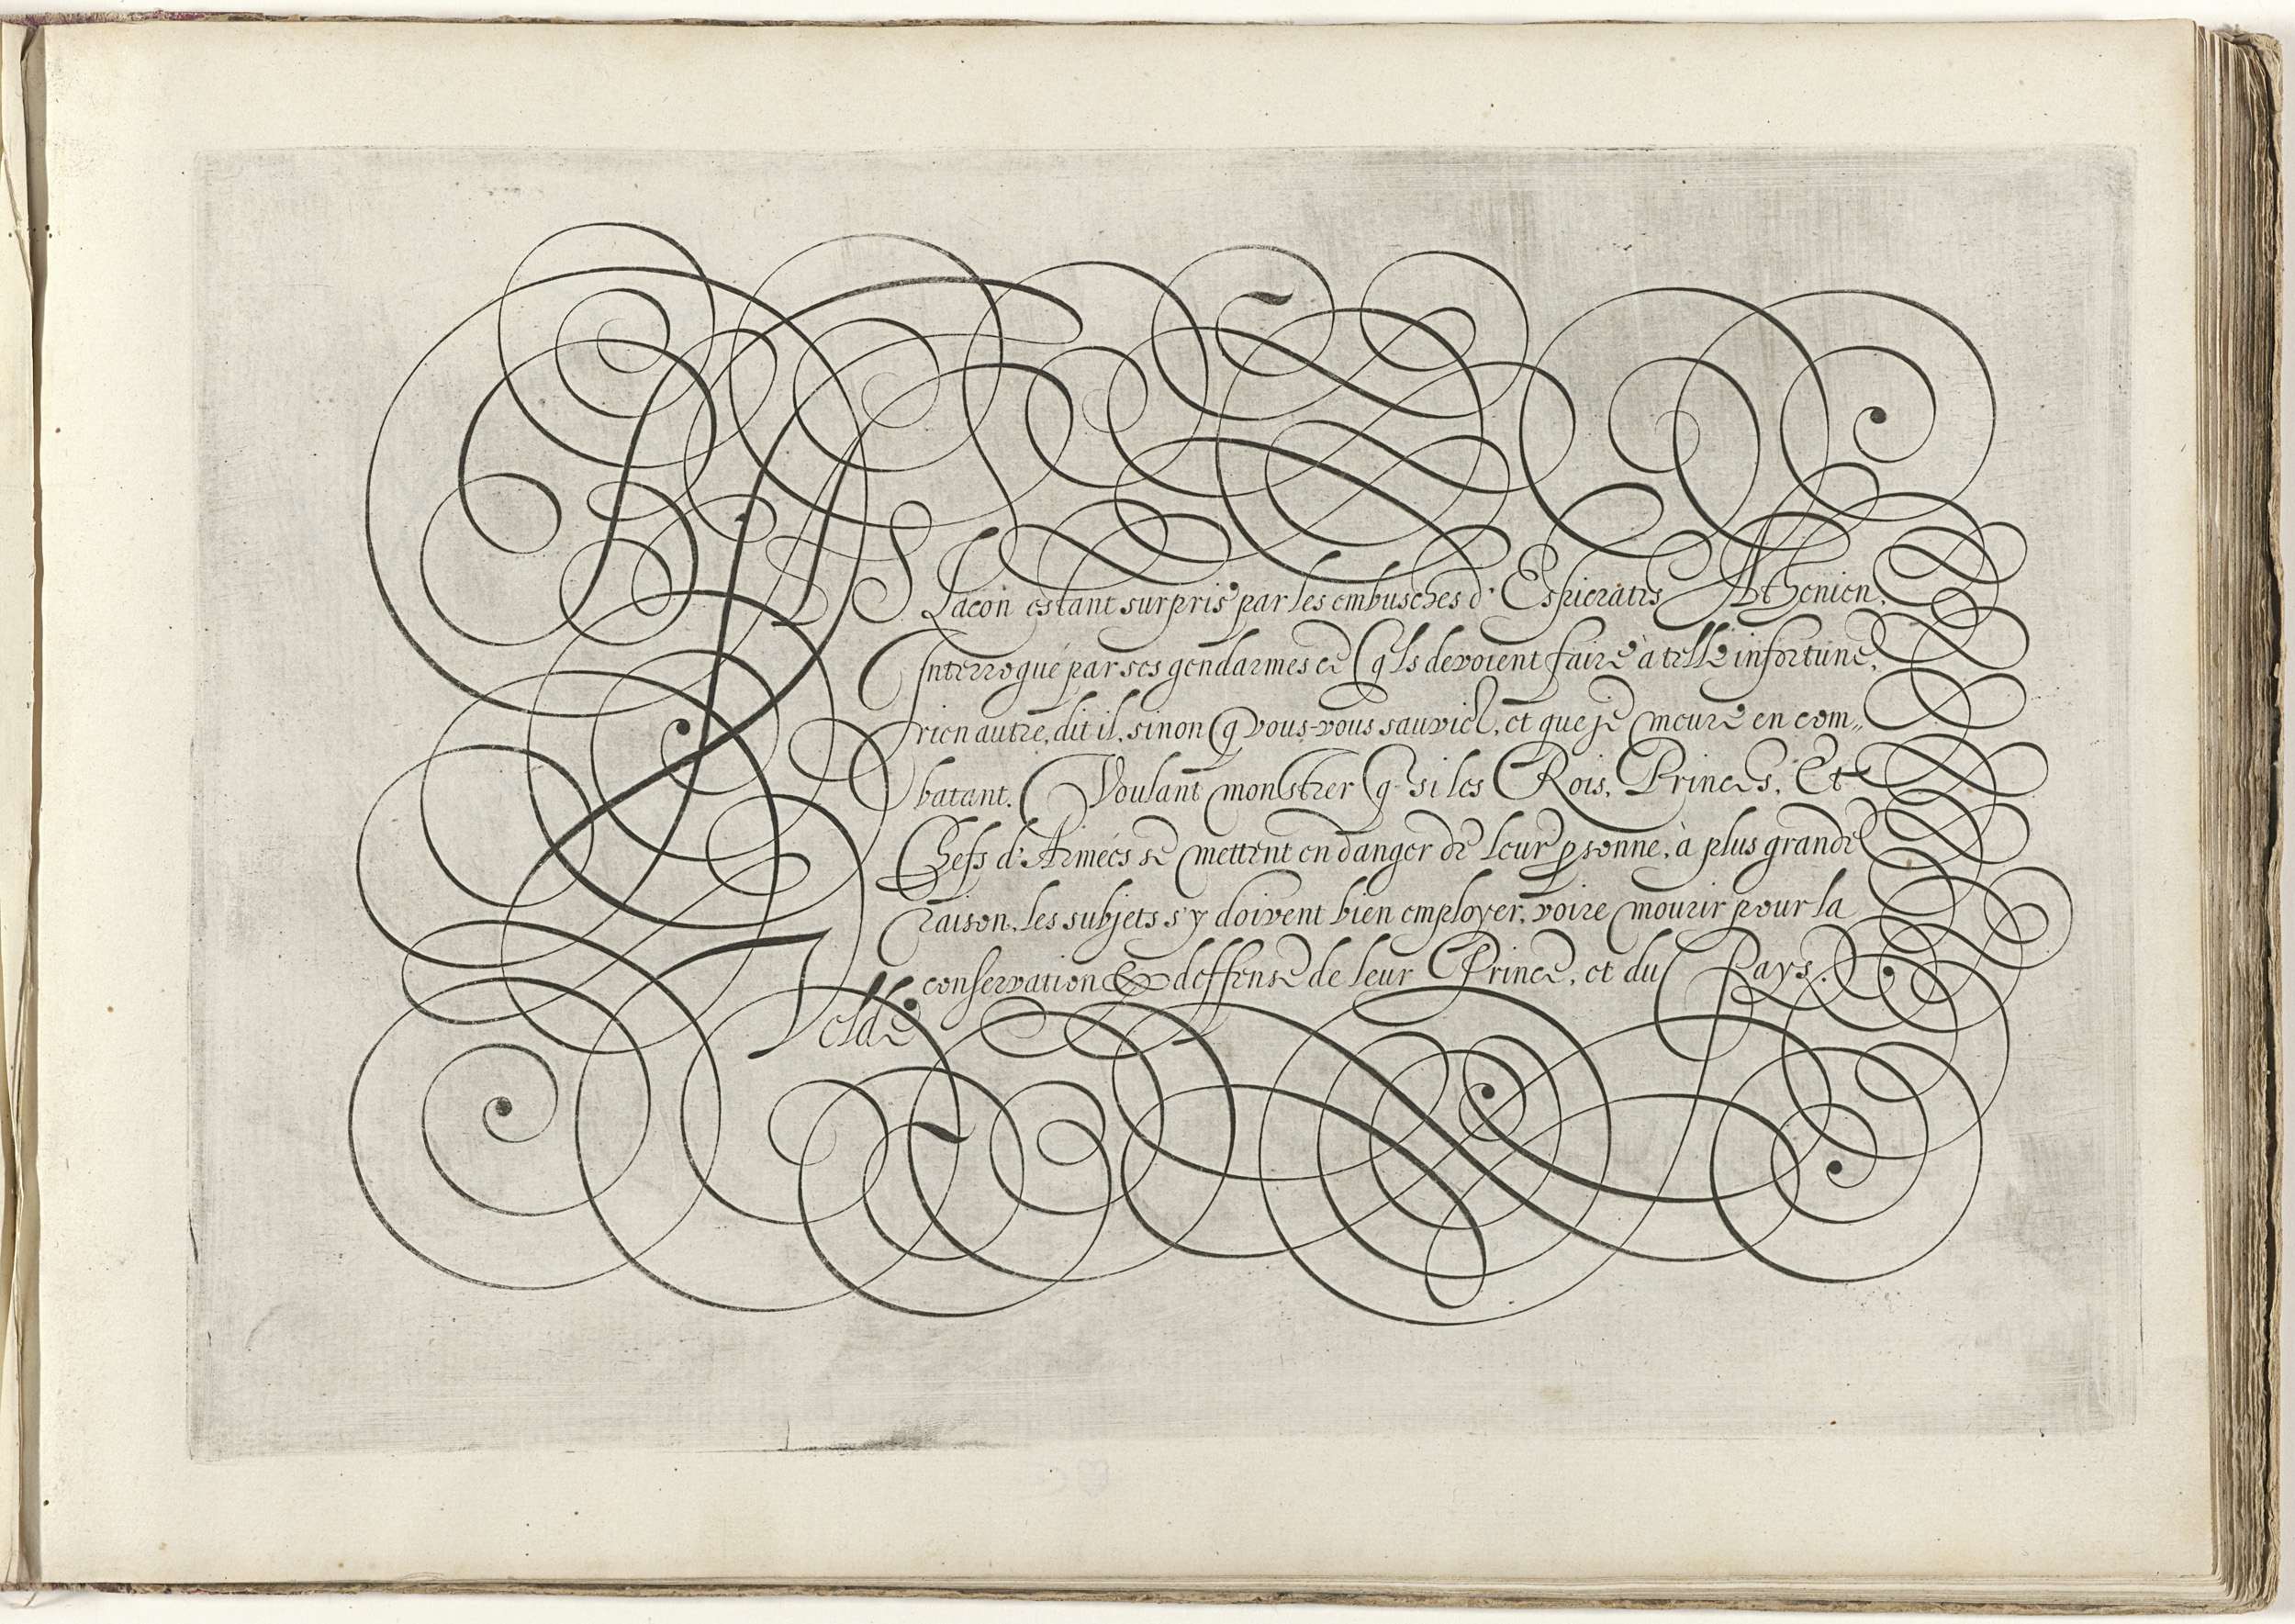 AS Lacon estant surpris par les embusches d'Esficratis Athenien,
Interrogué par ses gendarmes ce q̃ ls devoient faire à telle infortune,
rien autre, dit il, sinon q̃ vous-vous sauviez, et que je meure en com„
batant. Voulant monstrer q̃ si les Rois, Princes, Et
Chefs d'Armées se mettent en danger de leur psonne, à plus grande
raison, les subjets s'y doivent bien employer, voire mourir pour la
conservation & deffense de leur Prince, et du Pays.
Velde